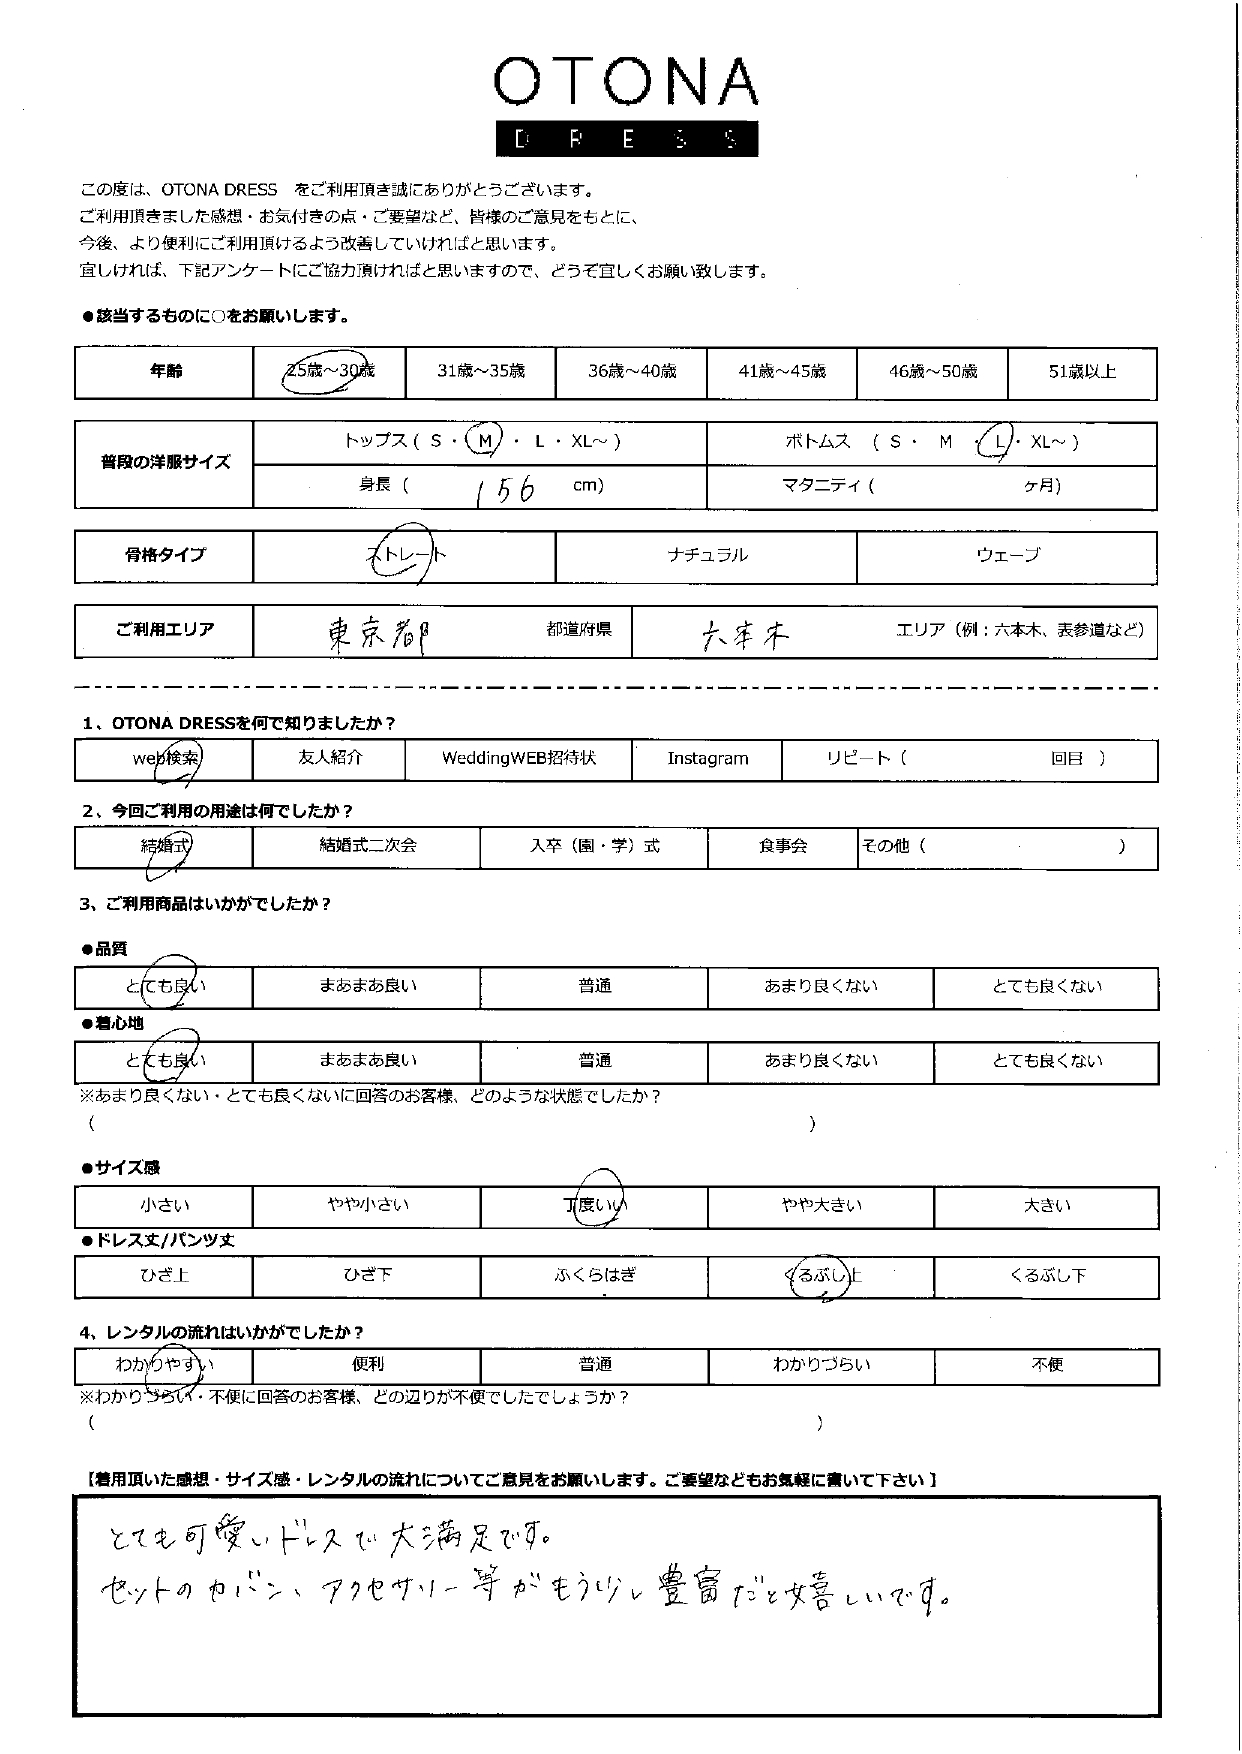 OTONA
DRESS
この度は、OTONA DRESS　をご利用頂き誠にありがとうございます。
ご利用頂きました感想・お気付きの点・ご要望など、皆様のご意見をもとに、
今後、より便利にご利用頂けるよう改善していければと思います。
宜しければ、下記アンケートにご協力頂ければと思いますので、どうぞ宜しくお願い致します。
●該当するものに○をお願いします。
年齢 25歳～30歳 31歳～35歳 36歳～40歳 41歳～45歳 46歳～50歳 51歳以上
普段の洋服サイズ トップス ( S ・ M ・ L ・ XL～ ) ボトムス ( S ・ M ・ L ・ XL～ )
身長 ( 156 cm) マタニティ ( ヶ月)
骨格タイプ ストレート ナチュラル ウェーブ
ご利用エリア 東京都 都道府県 六本木 エリア（例：六本木、表参道など）
1、OTONA DRESSを何で知りましたか？
web検索 友人紹介 WeddingWEB招待状 Instagram リピート（ 回目 ）
2、今回ご利用の用途は何でしたか？
結婚式 結婚式二次会 入卒（園・学）式 食事会 その他（ ）
3、ご利用商品はいかがでしたか？
●品質
とても良い まあまあ良い 普通 あまり良くない とても良くない
●着心地
とても良い まあまあ良い 普通 あまり良くない とても良くない
※あまり良くない・とても良くないに回答のお客様、どのような状態でしたか？
( )
●サイズ感
小さい やや小さい 丁度いい やや大きい 大きい
●ドレス丈/パンツ丈
ひざ上 ひざ下 ふくらはぎ くるぶし上 くるぶし下
4、レンタルの流れはいかがでしたか？
わかりやすい 便利 普通 わかりづらい 不便
※わかりづらい・不便に回答のお客様、どの辺りが不便でしたでしょうか？
( )
【着用頂いた感想・サイズ感・レンタルの流れについてご意見をお願いします。ご要望などもお気軽に書いて下さい】
とても可愛いドレスで大満足です。
セットのカバン、アクセサリー等がもう少し豊富だと嬉しいです。